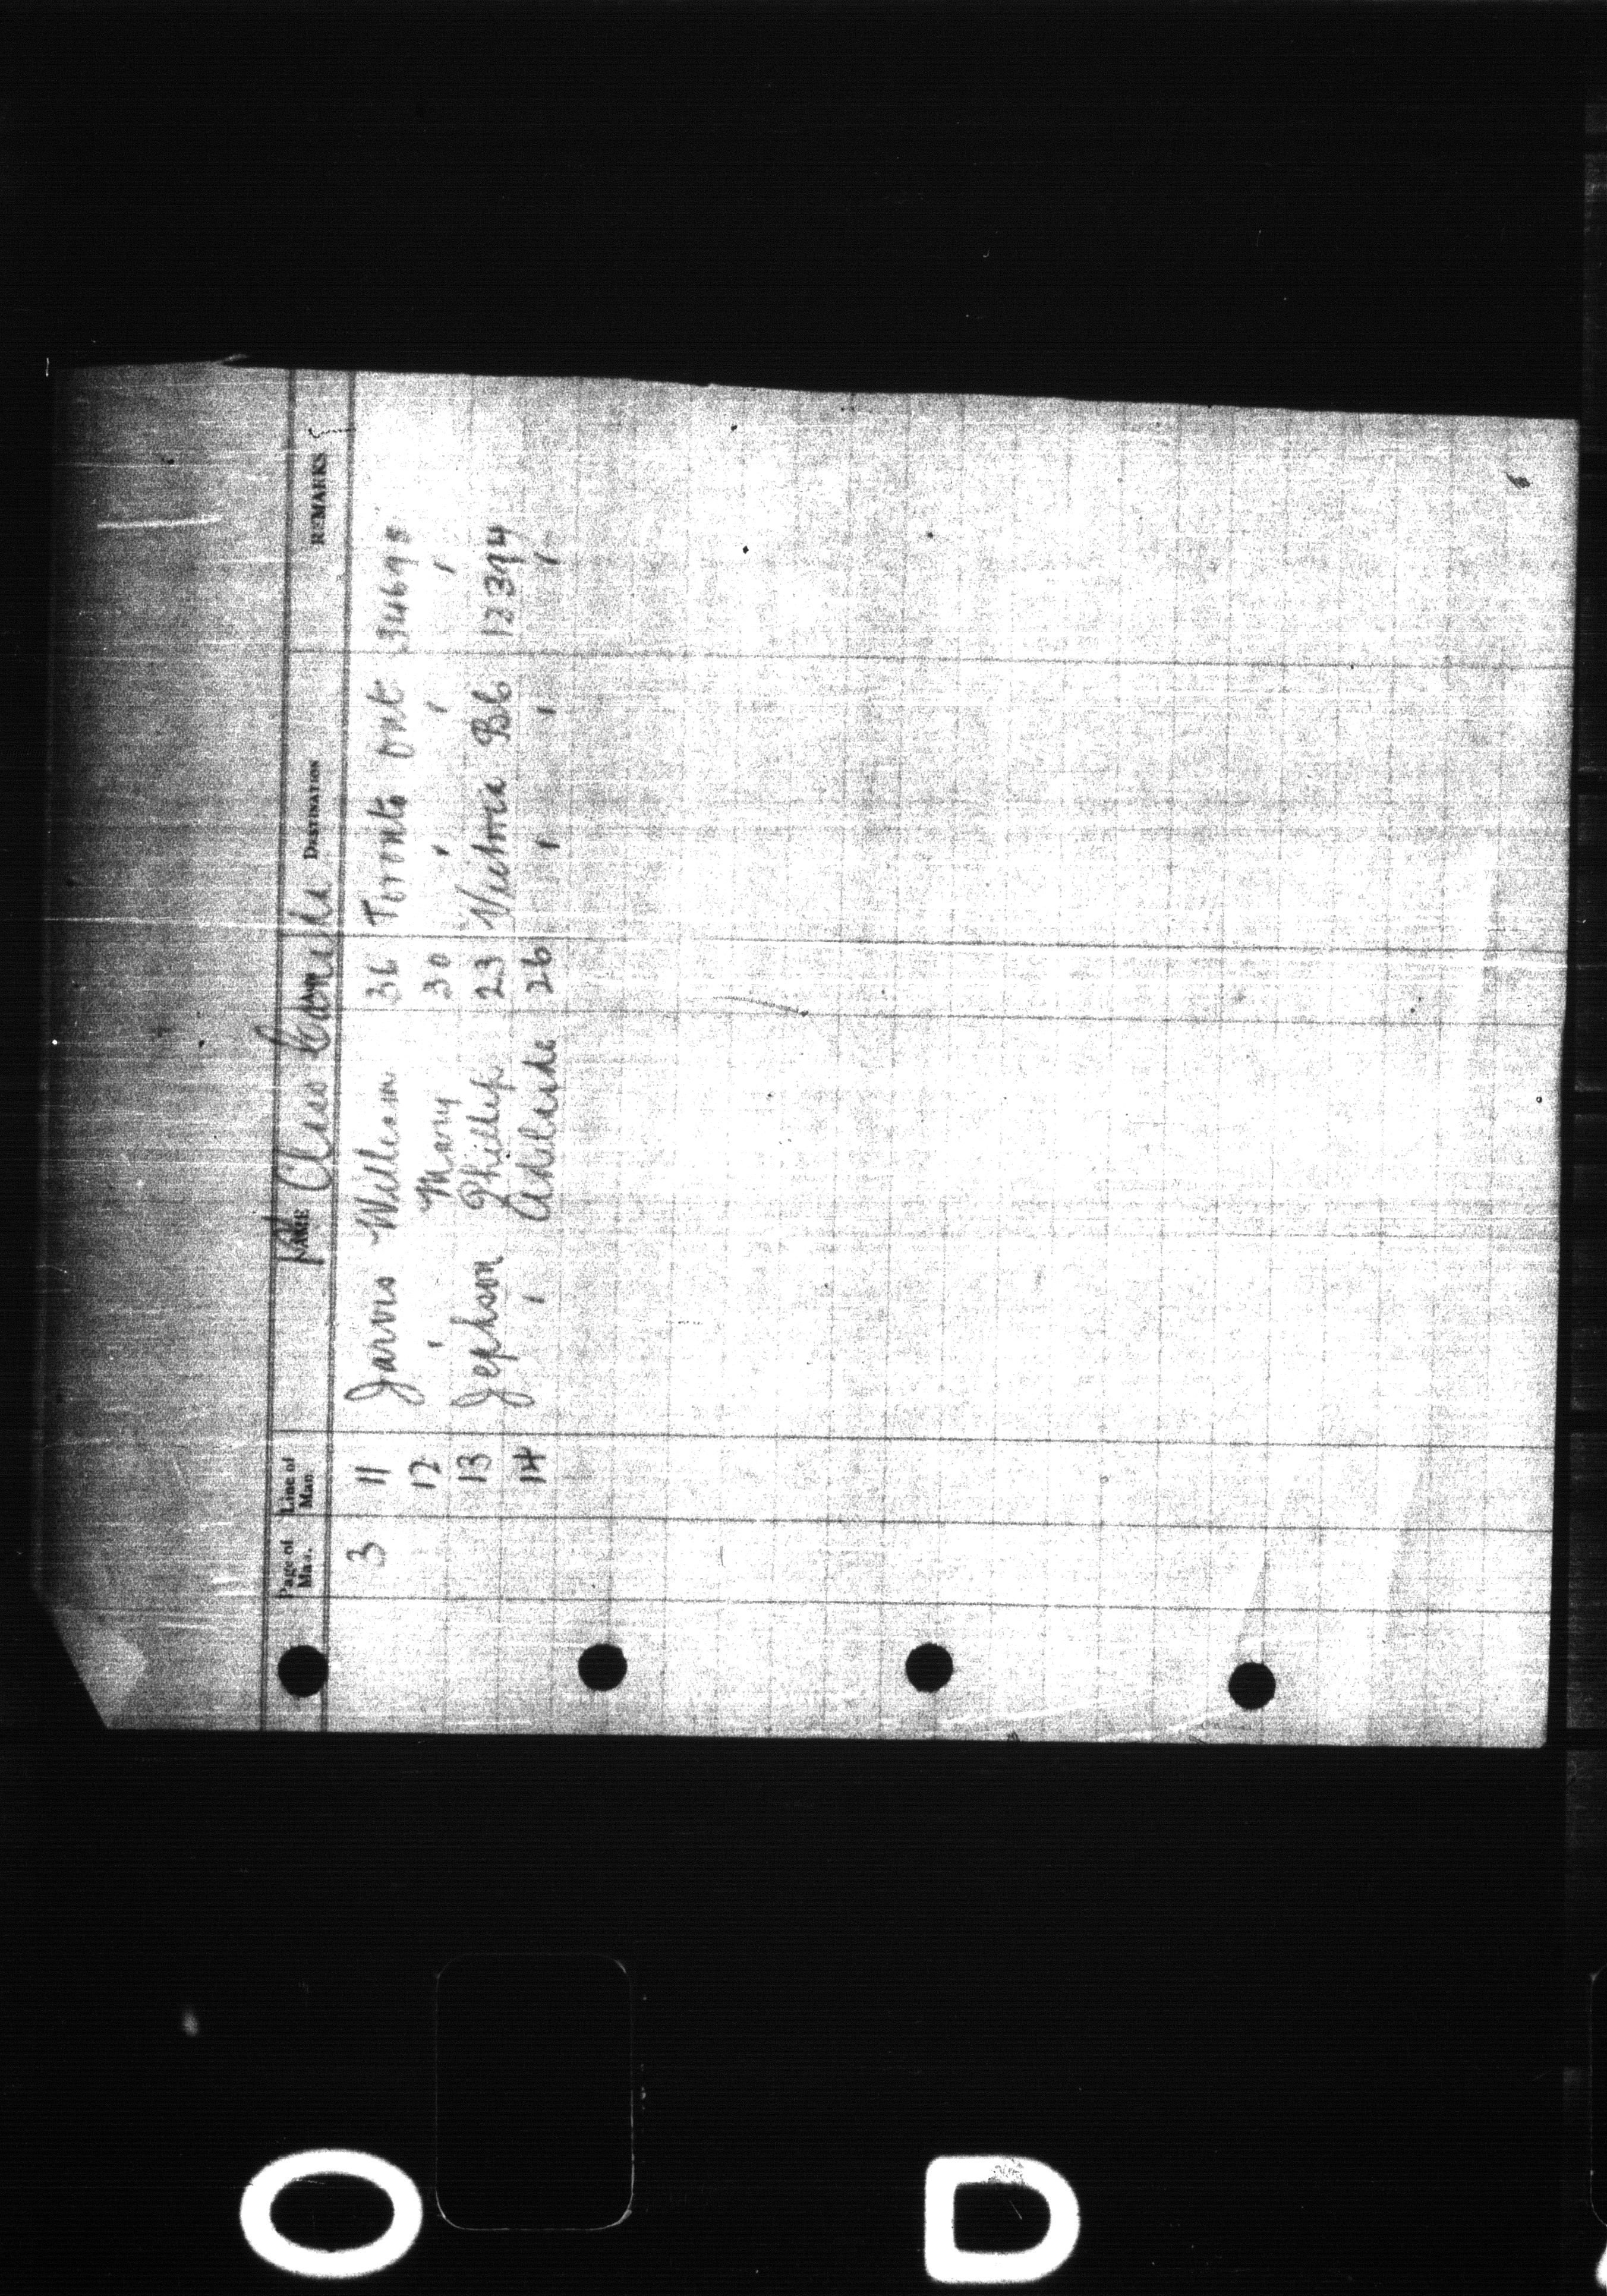 Page of Man. Line of Man NAME 1st Class Canada DESTINATION REMARKS
3 11 Jarvis William 36 Toronto Ont
12 " Mary 30 " " "
13 Jephson Phillip 23 Victoria BC 12394
14 " Adelaide 26 " " "
O D